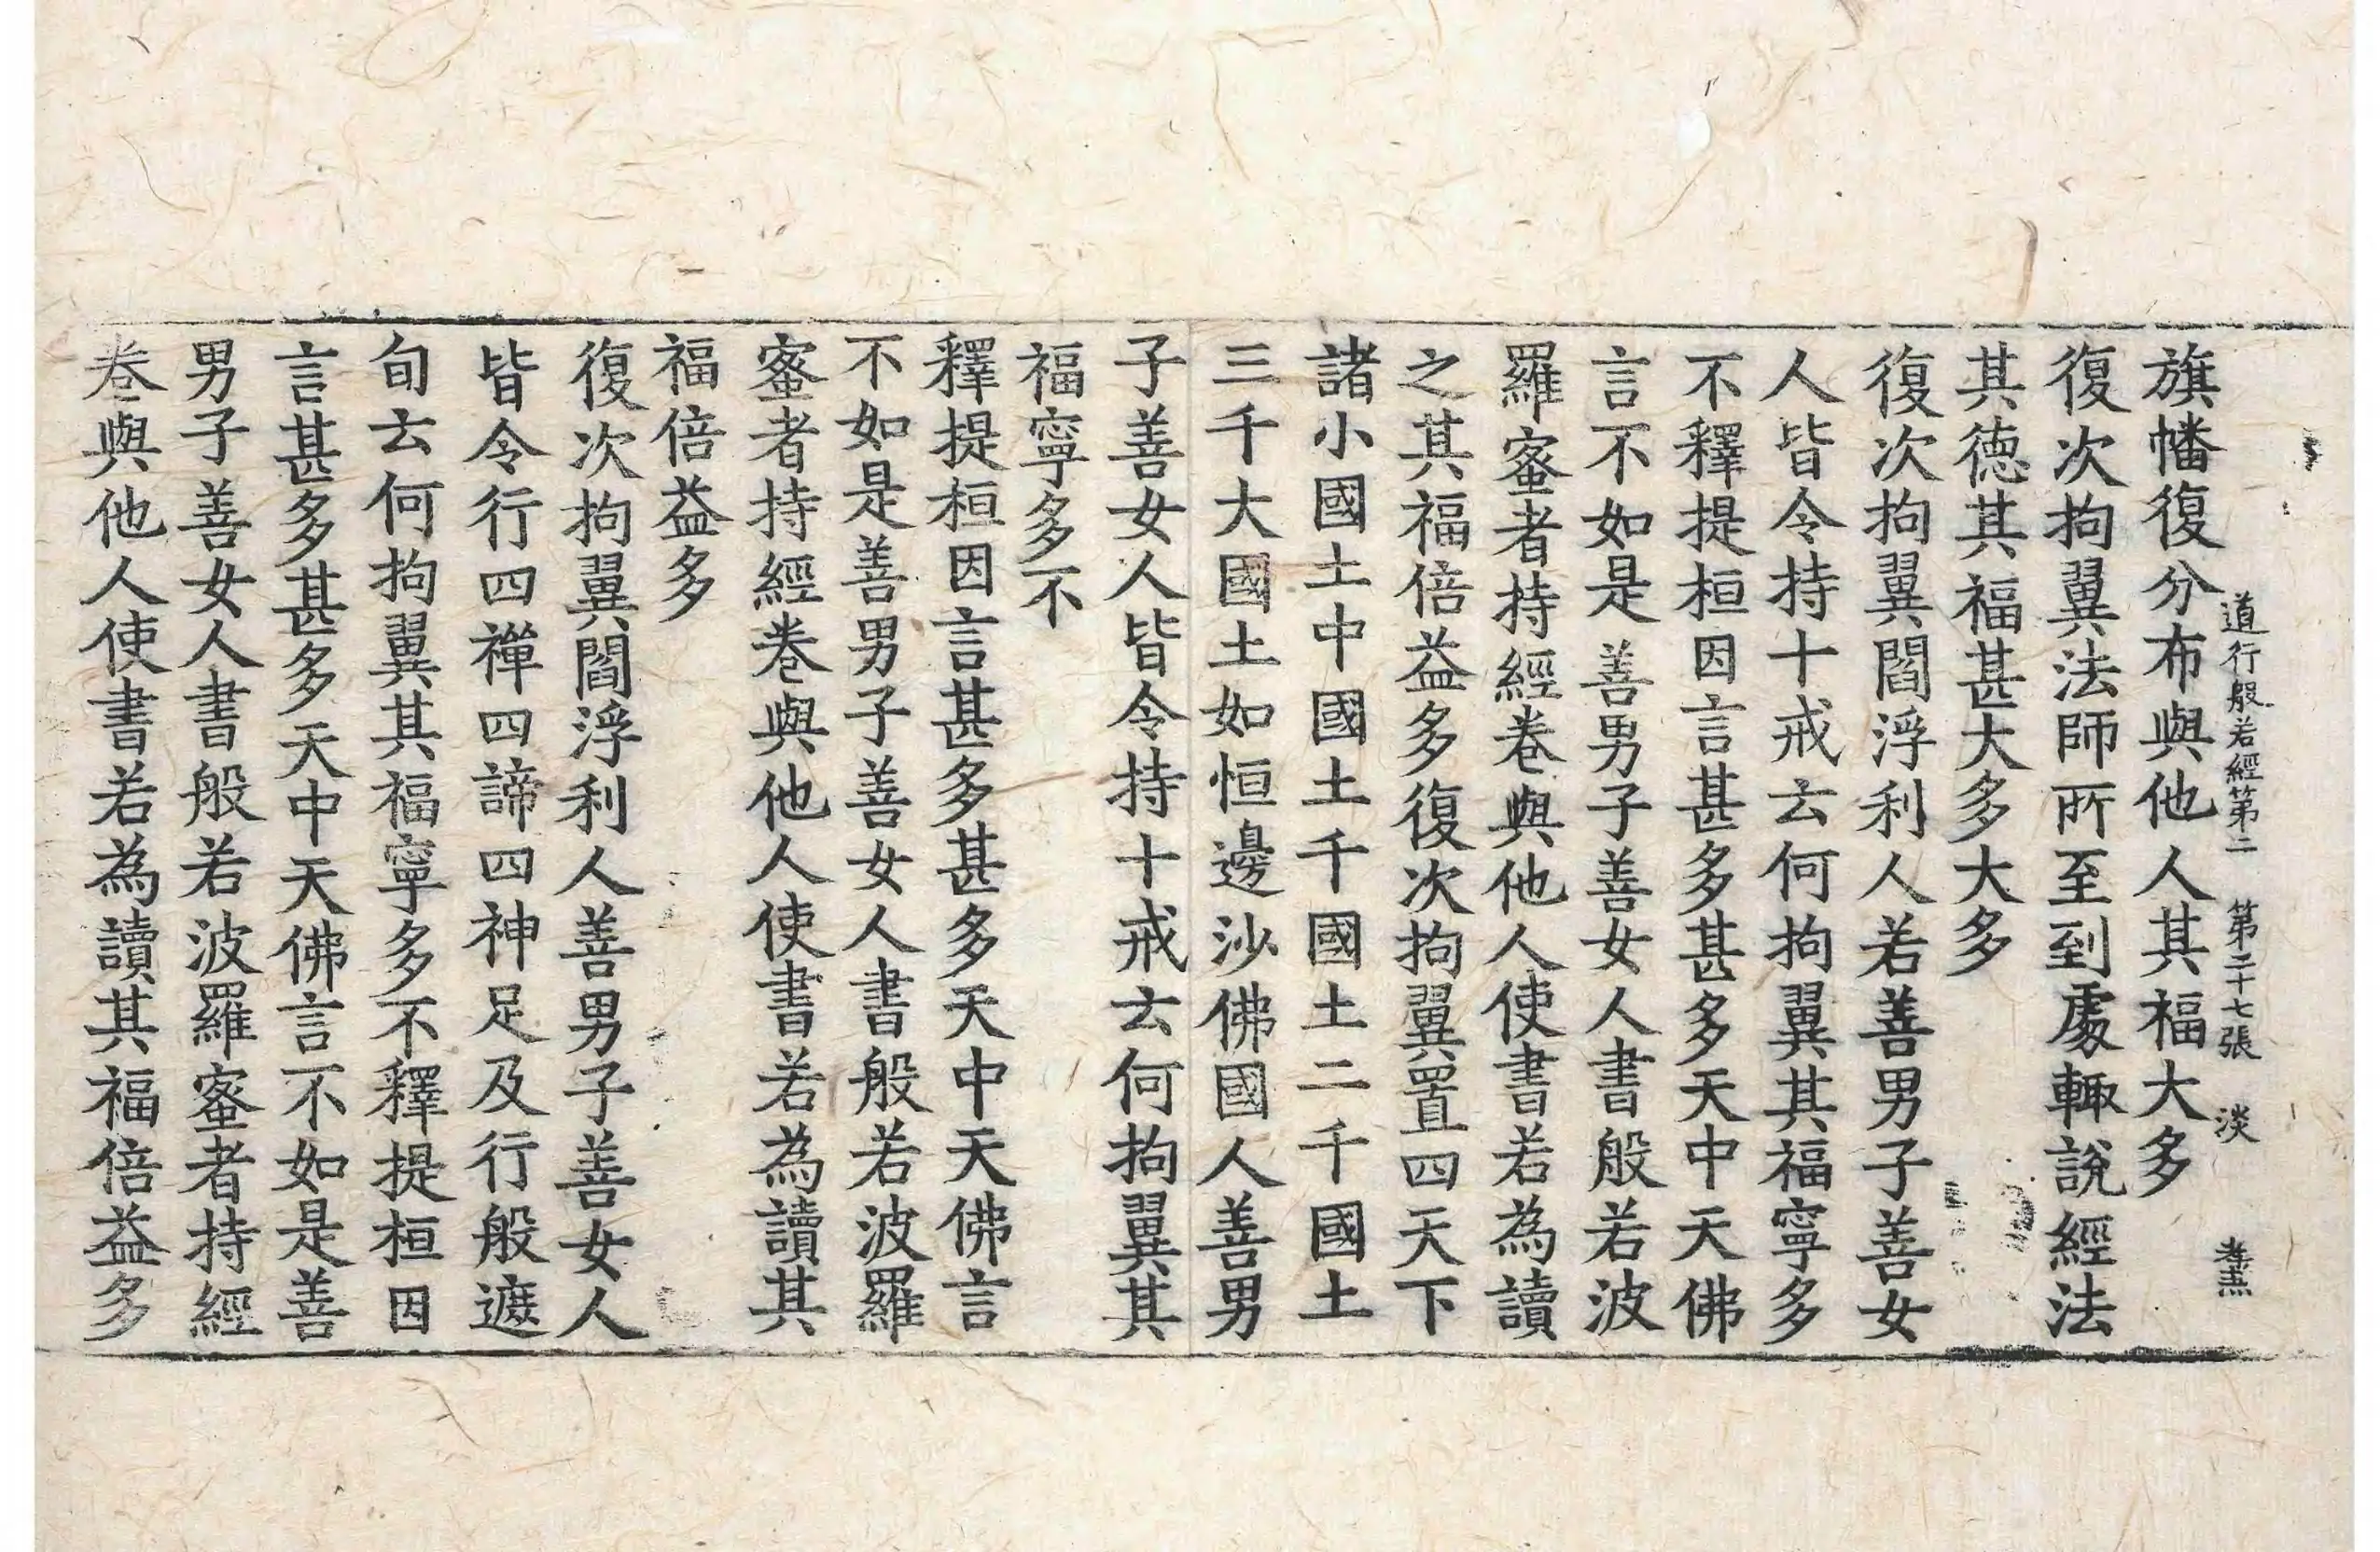 道行般若經第二 第二十七張 淡
旗幡復分布與他人其福大多
復次拘翼法師所至到處輙說經法
其德其福甚大多大多
復次拘翼閻浮利人若善男子善女
人皆令持十戒云何拘翼其福寧多
不釋提桓因言甚多甚多天中天佛
言不如是善男子善女人書般若波
羅蜜者持經卷與他人使書若為讀
之其福倍益多復次拘翼置四天下
諸小國土中國土千國土二千國土
三千大國土如恒邊沙佛國人善男
子善女人皆令持十戒云何拘翼其
福寧多不
釋提桓因言甚多甚多天中天佛言
不如是善男子善女人書般若波羅
蜜者持經卷與他人使書若為讀其
福倍益多
復次拘翼閻浮利人善男子善女人
皆令行四禪四諦四神足及行般遮
旬云何拘翼其福寧多不釋提桓因
言甚多甚多天中天佛言不如是善
男子善女人書般若波羅蜜者持經
卷與他人使書若為讀其福倍益多